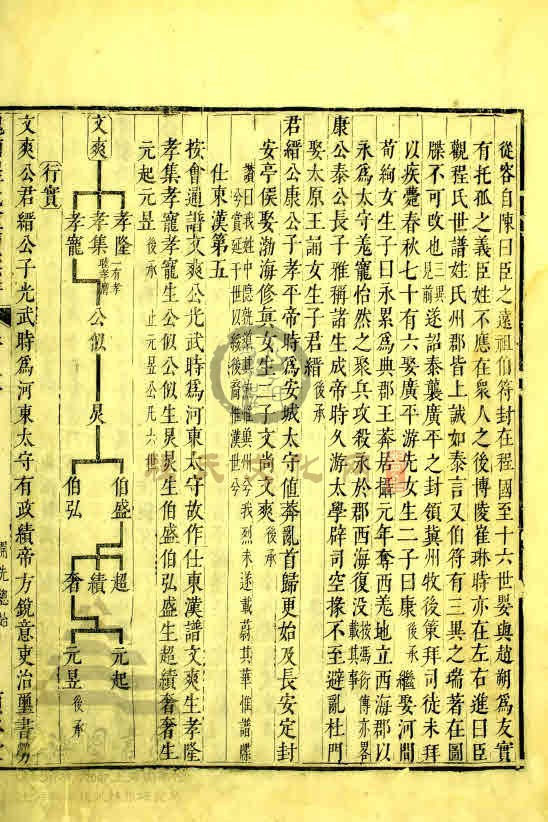 從容自陳曰臣之遠祖伯符封在程國至十六世嬰與趙朔為友實
有托孤之義臣姓不應在衆人之後博陵崔琳時亦在左右進曰臣
觀程氏世譜姓氏州郡皆上誠如泰言又伯符有三異之瑞著在圖
牒不可改也三異見前遂詔泰襲廣平之封領冀州牧後策拜司徒未拜
以疾薨春秋七十有六娶廣平游先女生二子曰康後承繼娶河間
荀絢女生子曰永累為典郡王莽居攝元年奪西羌地立西海郡以
永為太守羌寵怡然之聚兵攻殺永於郡西海復沒按馮衍傳亦畧載其事
康公泰公長子雅稱諸生成帝時久游太學辟司空掾不至避亂杜門
娶太原王誧女生子君縉後承
君縉公康公子孝平帝時為安城太守值莽亂首歸更始及長安定封
安亭侯娶渤海修真女生二子文尚文爽後承
仕東漢第五
按會通譜文爽公光武時為河東太守故作仕東漢譜文爽生孝隆
孝集孝寵孝寵生公似公似生炅炅生伯盛伯弘盛生超績奢奢生
元起元昱後承 止元昱公凡六世
文爽
孝隆
孝集
孝寵
公似
炅
伯盛
伯弘
超
績
奢
元起
元昱後承
行實
文爽公君縉公子光武時為河東太守有政績帝方銳意吏治璽書勞